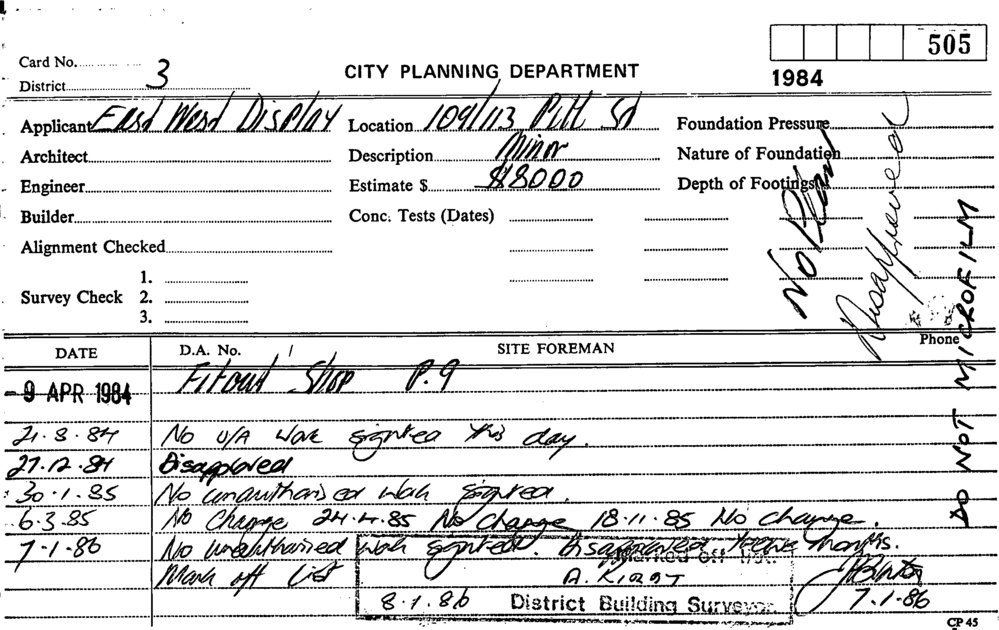 505
Card No.
District 3
CITY PLANNING DEPARTMENT
1984
Applicant East West Display
Location 109/113 Pitt St
Foundation Pressure
Architect
Description Minor
Nature of Foundation
Engineer
Estimate $ $8000
Depth of Footings
Builder
Conc. Tests (Dates)
Alignment Checked
Survey Check
1.
2.
3.
No Plan
Disapproved
DO NOT MICROFILM
DATE
D.A. No.
SITE FOREMAN
Phone
- 9 APR 1984 Fitout Shop P.9
21.8.84 No U/A Work sighted this day.
27.12.84 Disapproved
30.1.85 No unauthorised work sighted.
6.3.85 No Change 24.4.85 No change 18.11.85 No change.
7.1.86 No unauthorised work sighted. Disapproved twelve months.
Mark off List
Marked off list
8.1.86 District Building Surveyor
7.1.86
CP 45